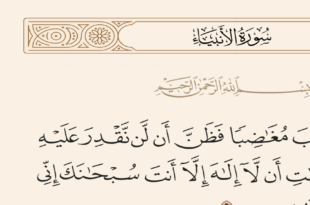 سُورَةُ الأَنبِيَاءِ
بِسْمِ اللَّهِ الرَّحْمَٰنِ الرَّحِيمِ
مُغَٰضِبًا فَظَنَّ أَن لَّن نَّقْدِرَ عَلَيْهِ
أَن لَّآ إِلَٰهَ إِلَّآ أَنتَ سُبْحَٰنَكَ إِنِّى